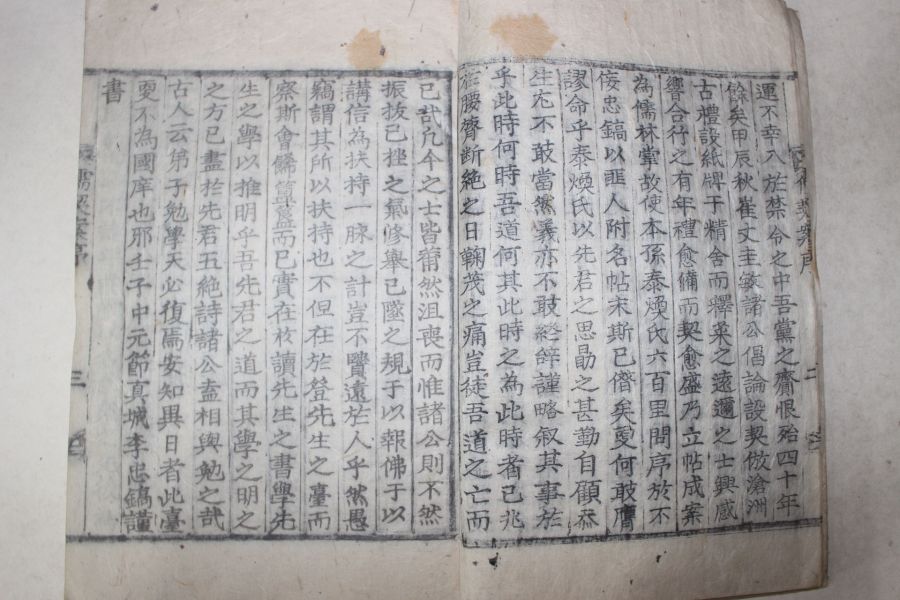 運不幸入於禁令之中吾黨之齎恨殆四十年
餘矣甲辰秋崔丈圭敏諸公倡論設契倣滄洲
古禮設紙牌于精舍而釋菜之遠邇之士興感
響合行之有年禮愈備而契愈盛乃立帖成案
為儒林堂故使本孫泰煥氏六百里問序於不
佞忠鎬以匪人附名帖末斯已僭矣更何敢膺
謬命乎泰煥氏以先君之思勗之甚勤自顧忝
生尤不敢當然義亦不敢終辭謹略叙其事於
乎此時何時吾道何其此時之為此時者已兆
在腰膂斷絶之日鞠茂之痛豈徒吾道之亡而
已哉凡今之士皆薾然沮喪而惟諸公則不然
振拔已挫之氣修舉已墜之規于以報佛于以
講信為扶持一脉之計豈不賢遠於人乎然愚
竊謂其所以扶持也不但在於登先生之臺而
察斯會餙簠簋而已實在於讀先生之書學先
生之學以推明乎吾先君之道而其學之明之
之方已盡於先君五絶詩諸公盍相與勉之哉
古人云弟子勉學天必復焉安知異日者此臺
更不為國庠也邪壬子中元節真城李忠鎬謹
書
契案序
二
三